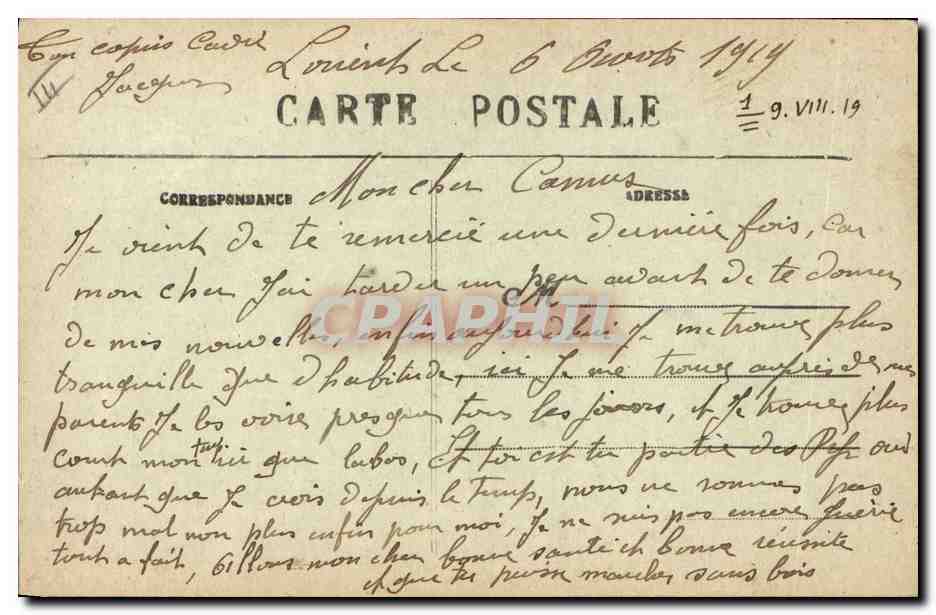 Ton copin Cadic
Jacques
Lorient Le 6 Aouts 1919
III
CARTE POSTALE
1 9.VIII.19
CORRESPONDANCE
ADRESSE
Mon cher Camus
Je vient de te remercié une dernière fois, car
mon cher J'ai tarder un peu avant de te donner
M
CPARHTI
de mes nouvelles, enfin aujourdhui Je me trouve plus
tranquille que d'habitude, ici Je me trouve auprès de mes
parents Je les voire presques tous les jours, et Je trouve plus
court mon temp ici que labas, Et toi est tu partie des
autant que Je crois depuis le temp, nous ne sommes pas
trop mal non plus enfin pour moi, Je ne suis pas encore Guérie
tout a fait, Allons mon cher bonne santé et bonne réussite
et que tu puisse marcher sans bois